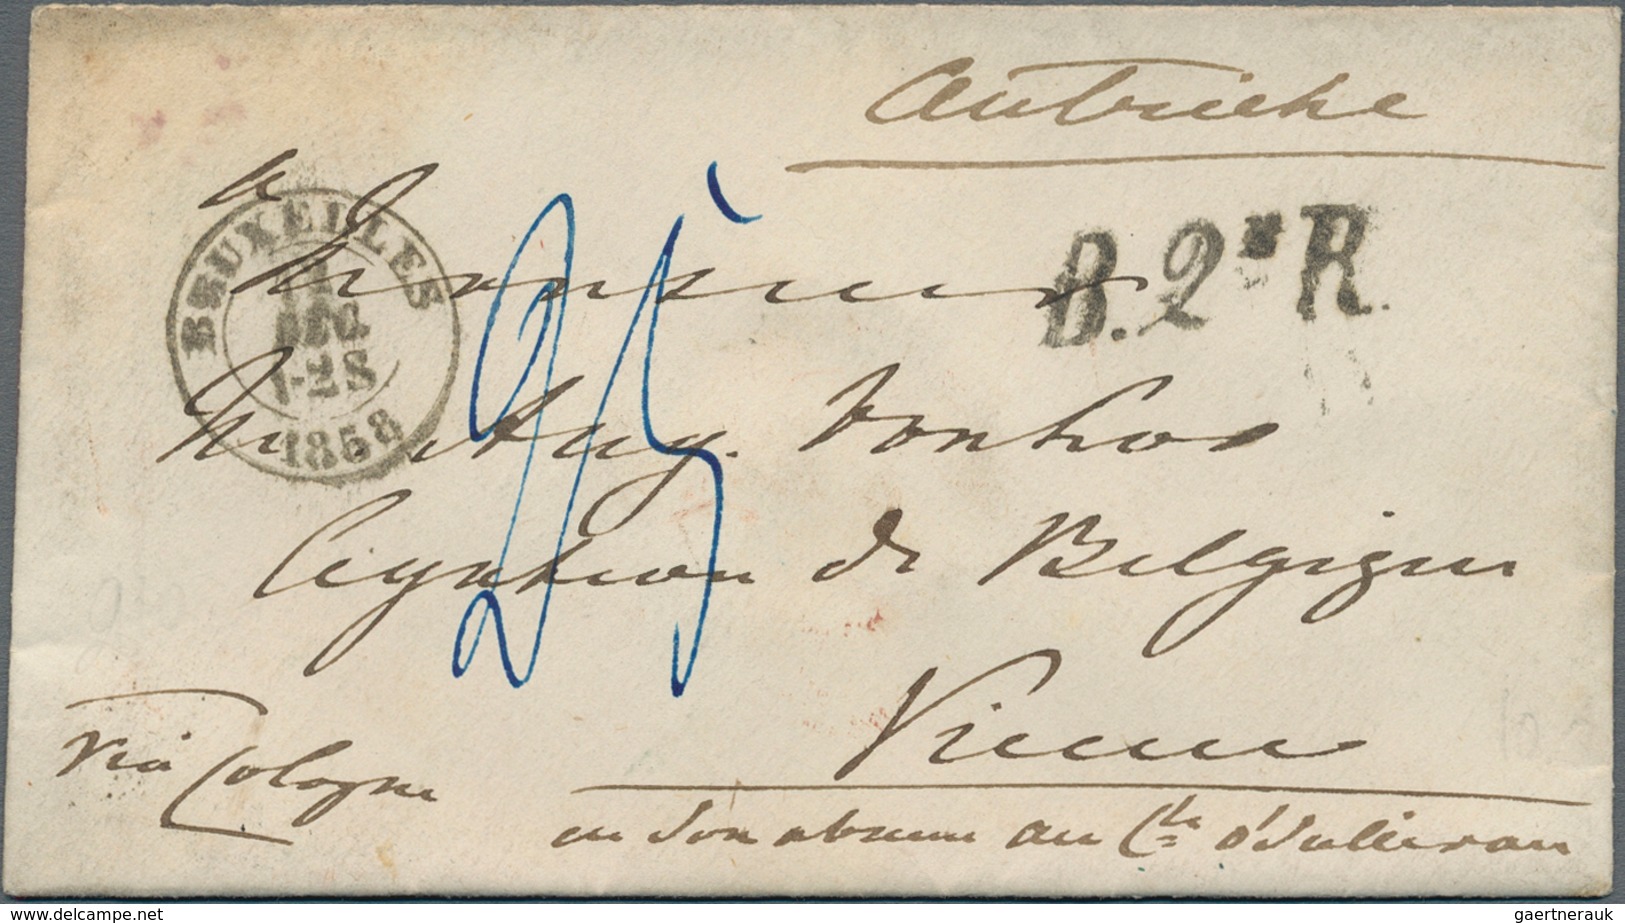 Autriche
a
BRUXELLES
DEC.
1-2S
1858
B. 2ˢ R.
25
Monsieur
Mr Aug. Vonhos
Légation de Belgique
Vienne
Via Cologne
en son absence au Cte O'Sullivan
www.delcampe.net
gaertnerauk